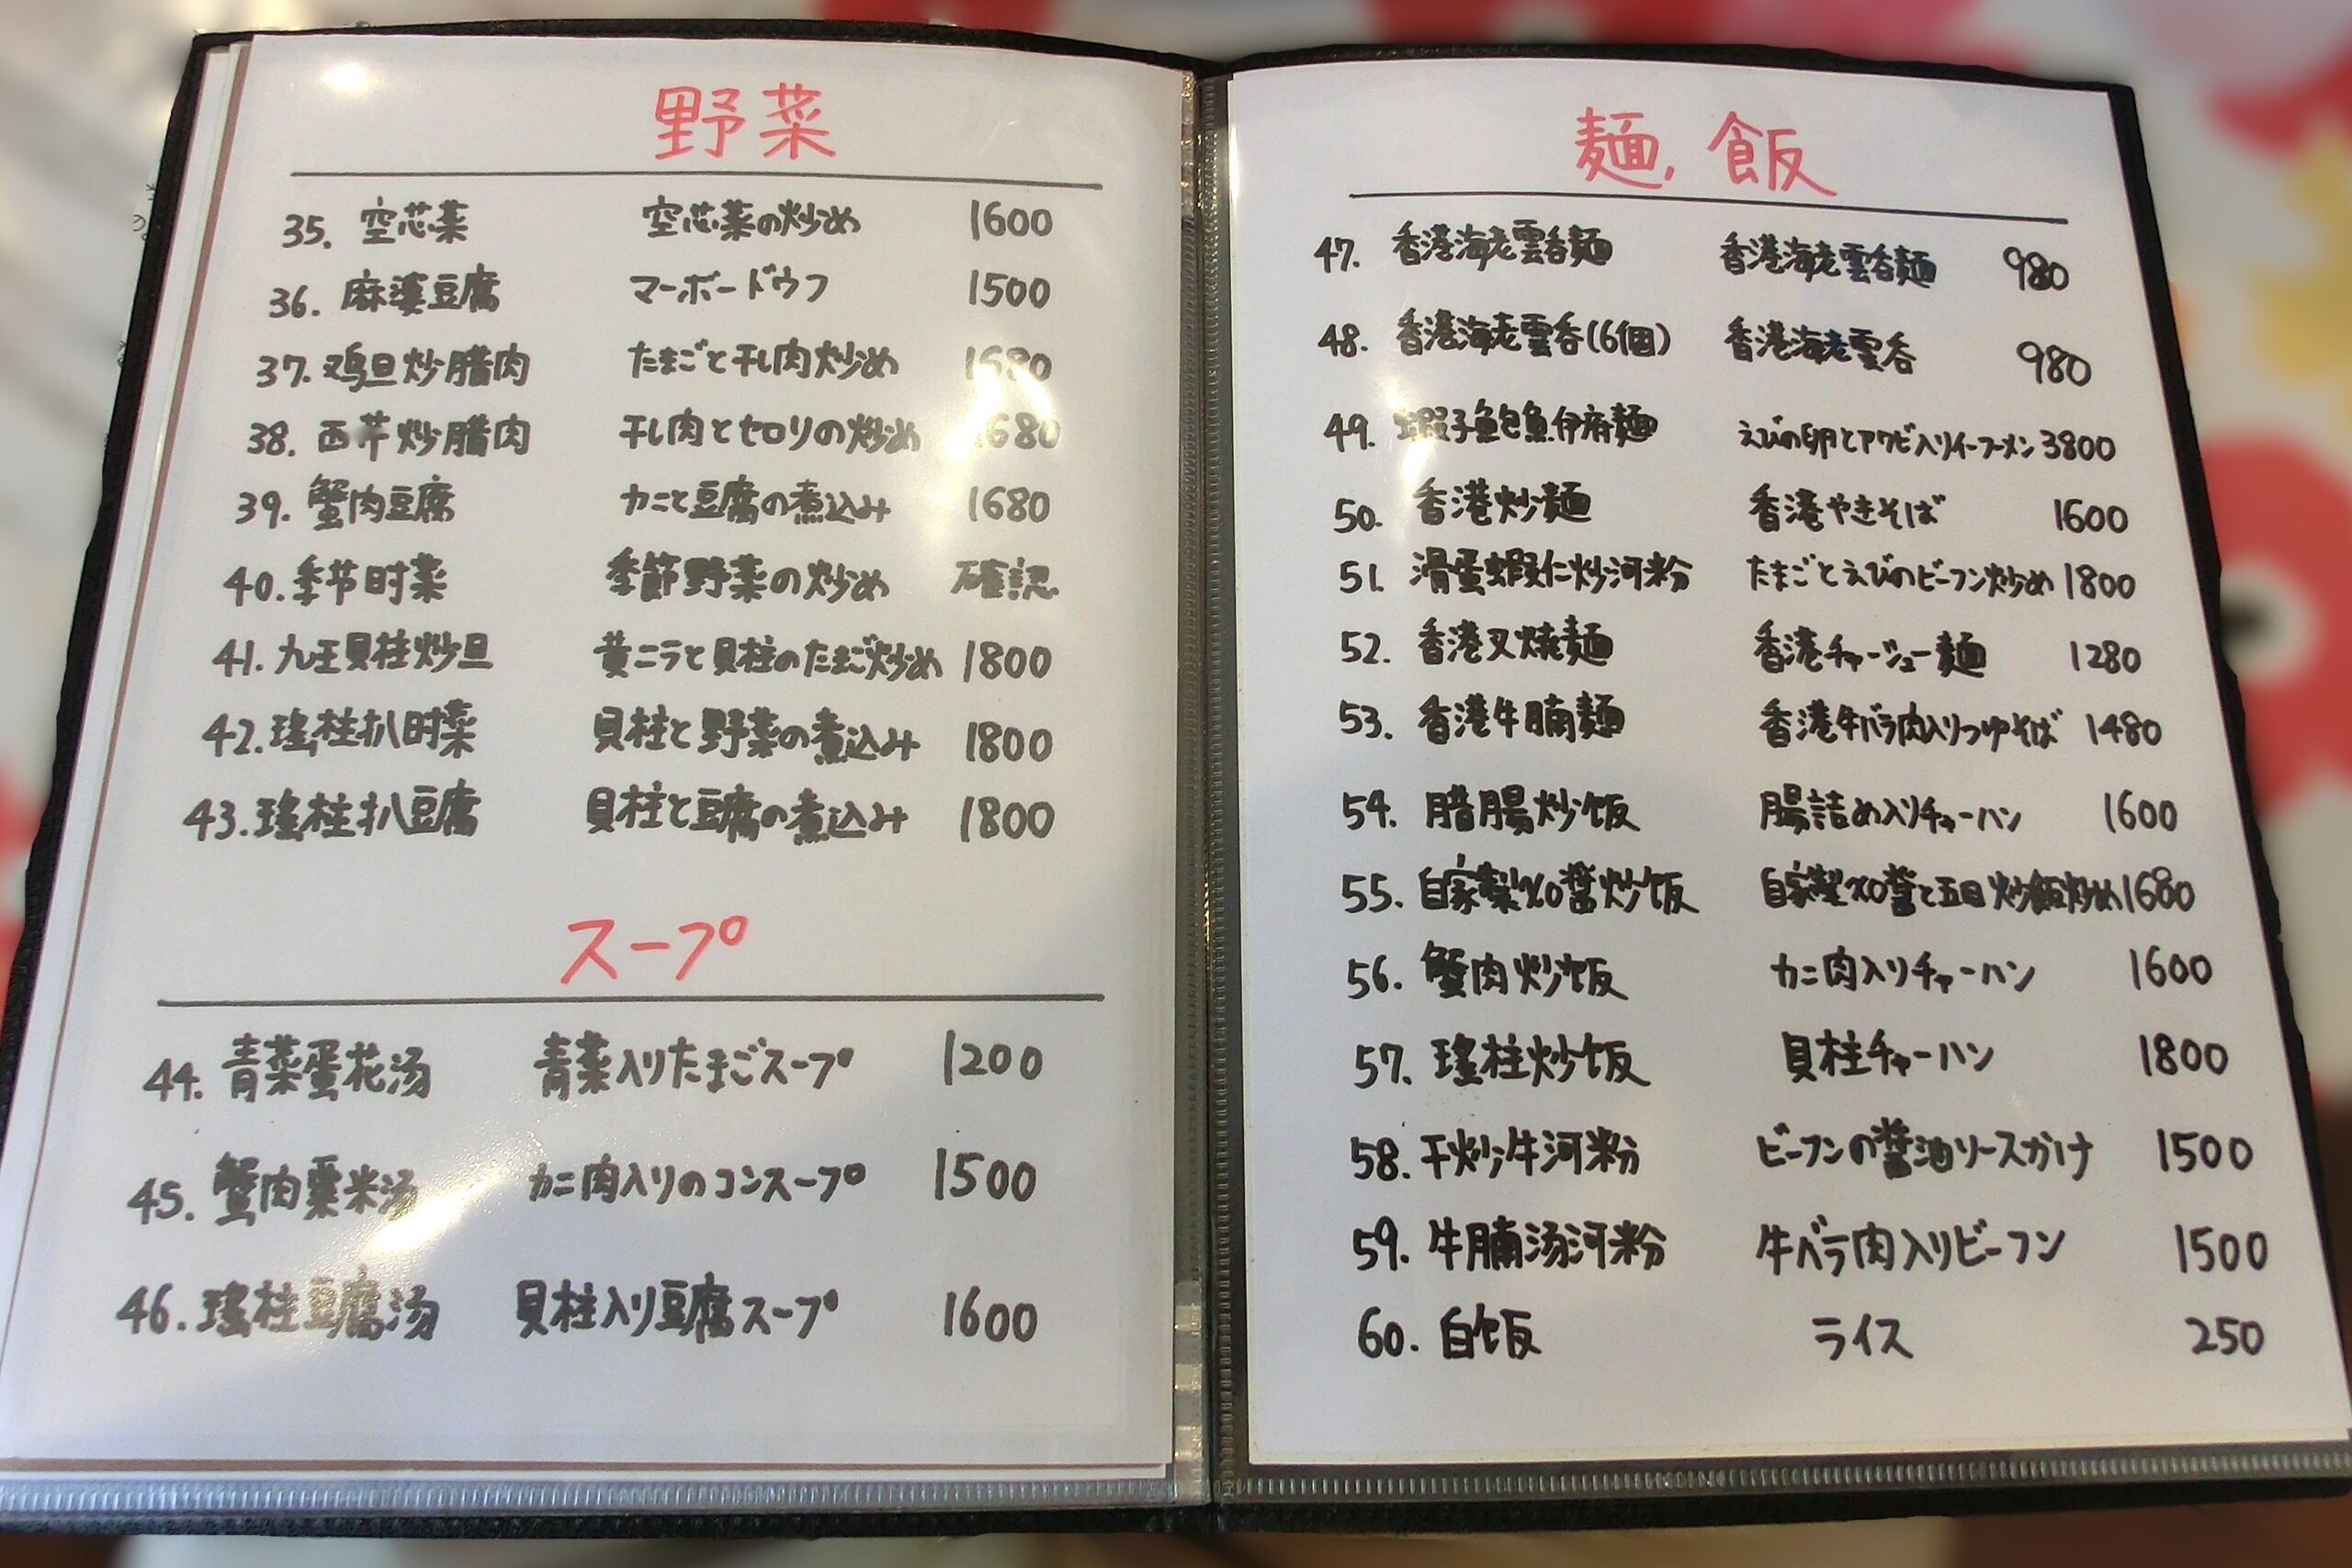 野菜
35. 空芯菜 空芯菜の炒め 1600
36. 麻婆豆腐 マーボードウフ 1500
37. 鸡旦炒腊肉 たまごと干し肉炒め 1680
38. 西芹炒腊肉 干し肉とセロリの炒め 1680
39. 蟹肉豆腐 カニと豆腐の煮込み 1680
40. 季节时菜 季節野菜の炒め 確認
41. 九王貝柱炒旦 黄ニラと貝柱のたまご炒め 1800
42. 瑤柱扒时菜 貝柱と野菜の煮込み 1800
43. 瑤柱扒豆腐 貝柱と豆腐の煮込み 1800
スープ
44. 青菜蛋花汤 青菜入りたまごスープ 1200
45. 蟹肉粟米汤 カニ肉入りのコンスープ 1500
46. 瑤柱豆腐汤 貝柱入り豆腐スープ 1600
麺, 飯
47. 香港海老雲呑麺 香港海老雲呑麺 980
48. 香港海老雲呑(6個) 香港海老雲呑 980
49. 蝦子鮑魚伊府麺 えびの卵とアワビ入りイーフーメン 3800
50. 香港炒麺 香港やきそば 1600
51. 滑蛋蝦仁炒河粉 たまごとえびのビーフン炒め 1800
52. 香港叉焼麺 香港チャーシュー麺 1280
53. 香港牛腩麺 香港牛バラ肉入りつゆそば 1480
54. 腊腸炒饭 腸詰め入りチャーハン 1600
55. 自家製XO醤炒饭 自家製XO醤と五目炒飯炒め
56. 蟹肉炒饭 カニ肉入りチャーハン 1600
57. 瑤柱炒饭 貝柱チャーハン 1800
58. 干炒牛河粉 ビーフンの醤油ソースかけ 1500
59. 牛腩汤河粉 牛バラ肉入りビーフン 1500
60. 白饭 ライス 250